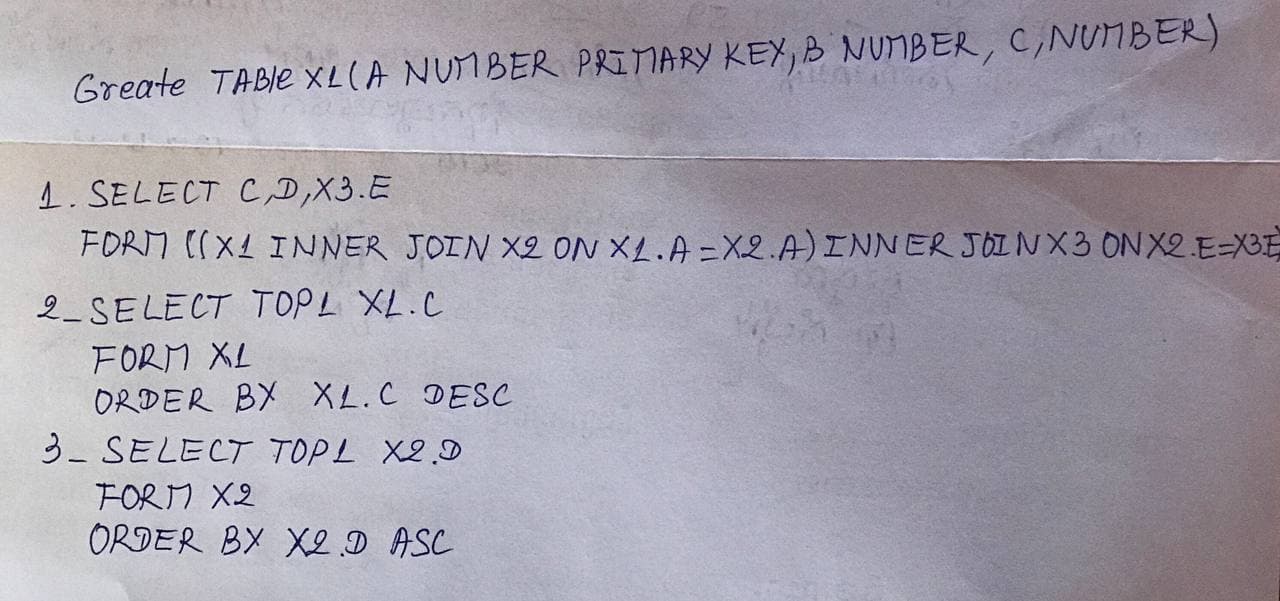 Greate TABle X1(A NUMBER PRIMARY KEY,B NUMBER, C,NUMBER)
1. SELECT C,D,X3.E
FORM ((X1 INNER JOIN X2 ON X1.A=X2.A) INNER JOIN X3 ON X2.E=X3.E)
2_ SELECT TOP1 X1.C
FORM X1
ORDER BY X1.C DESC
3_ SELECT TOP1 X2.D
FORM X2
ORDER BY X2.D ASC